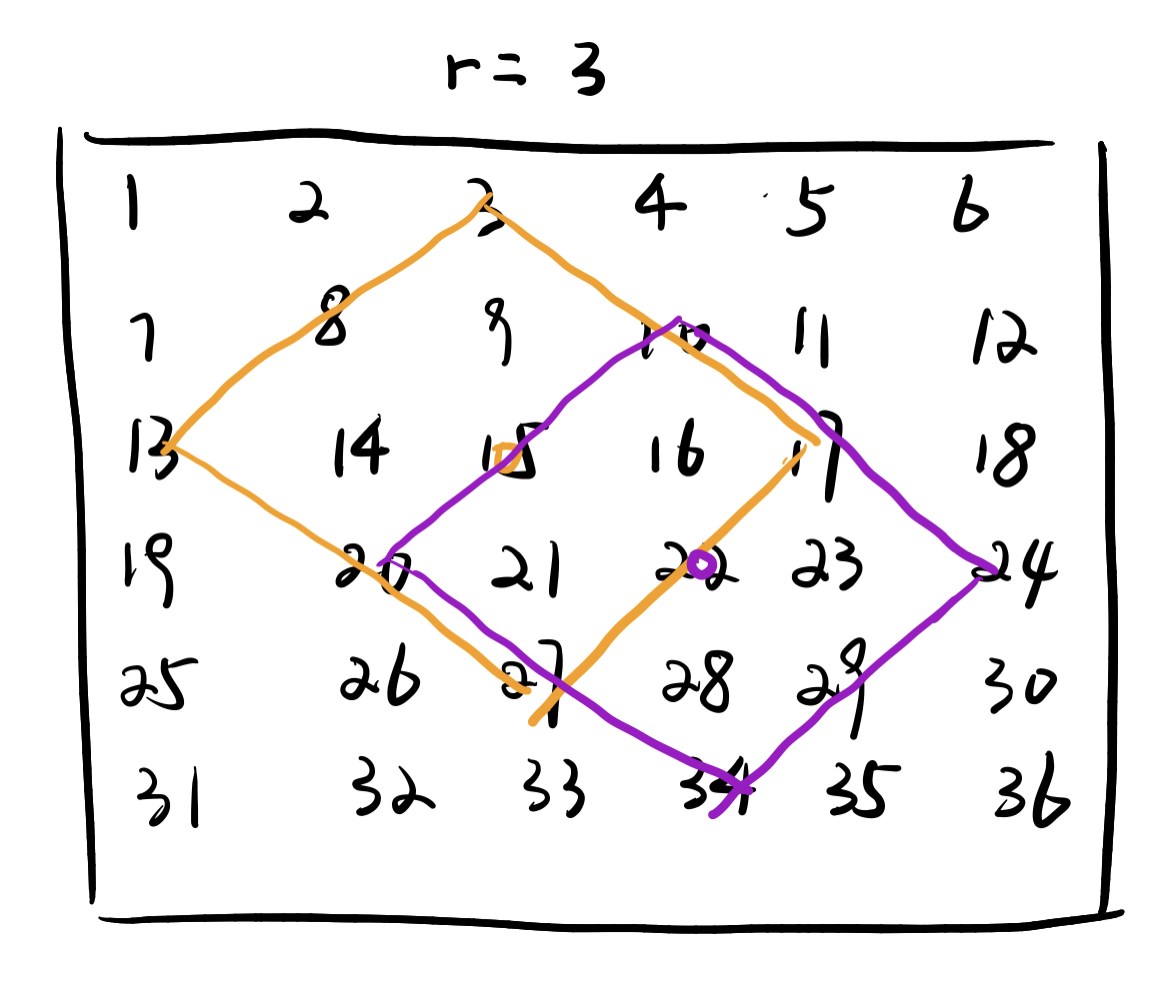 r = 3
1 2 3 4 5 6
7 8 9 10 11 12
13 14 15 16 17 18
19 20 21 22 23 24
25 26 27 28 29 30
31 32 33 34 35 36